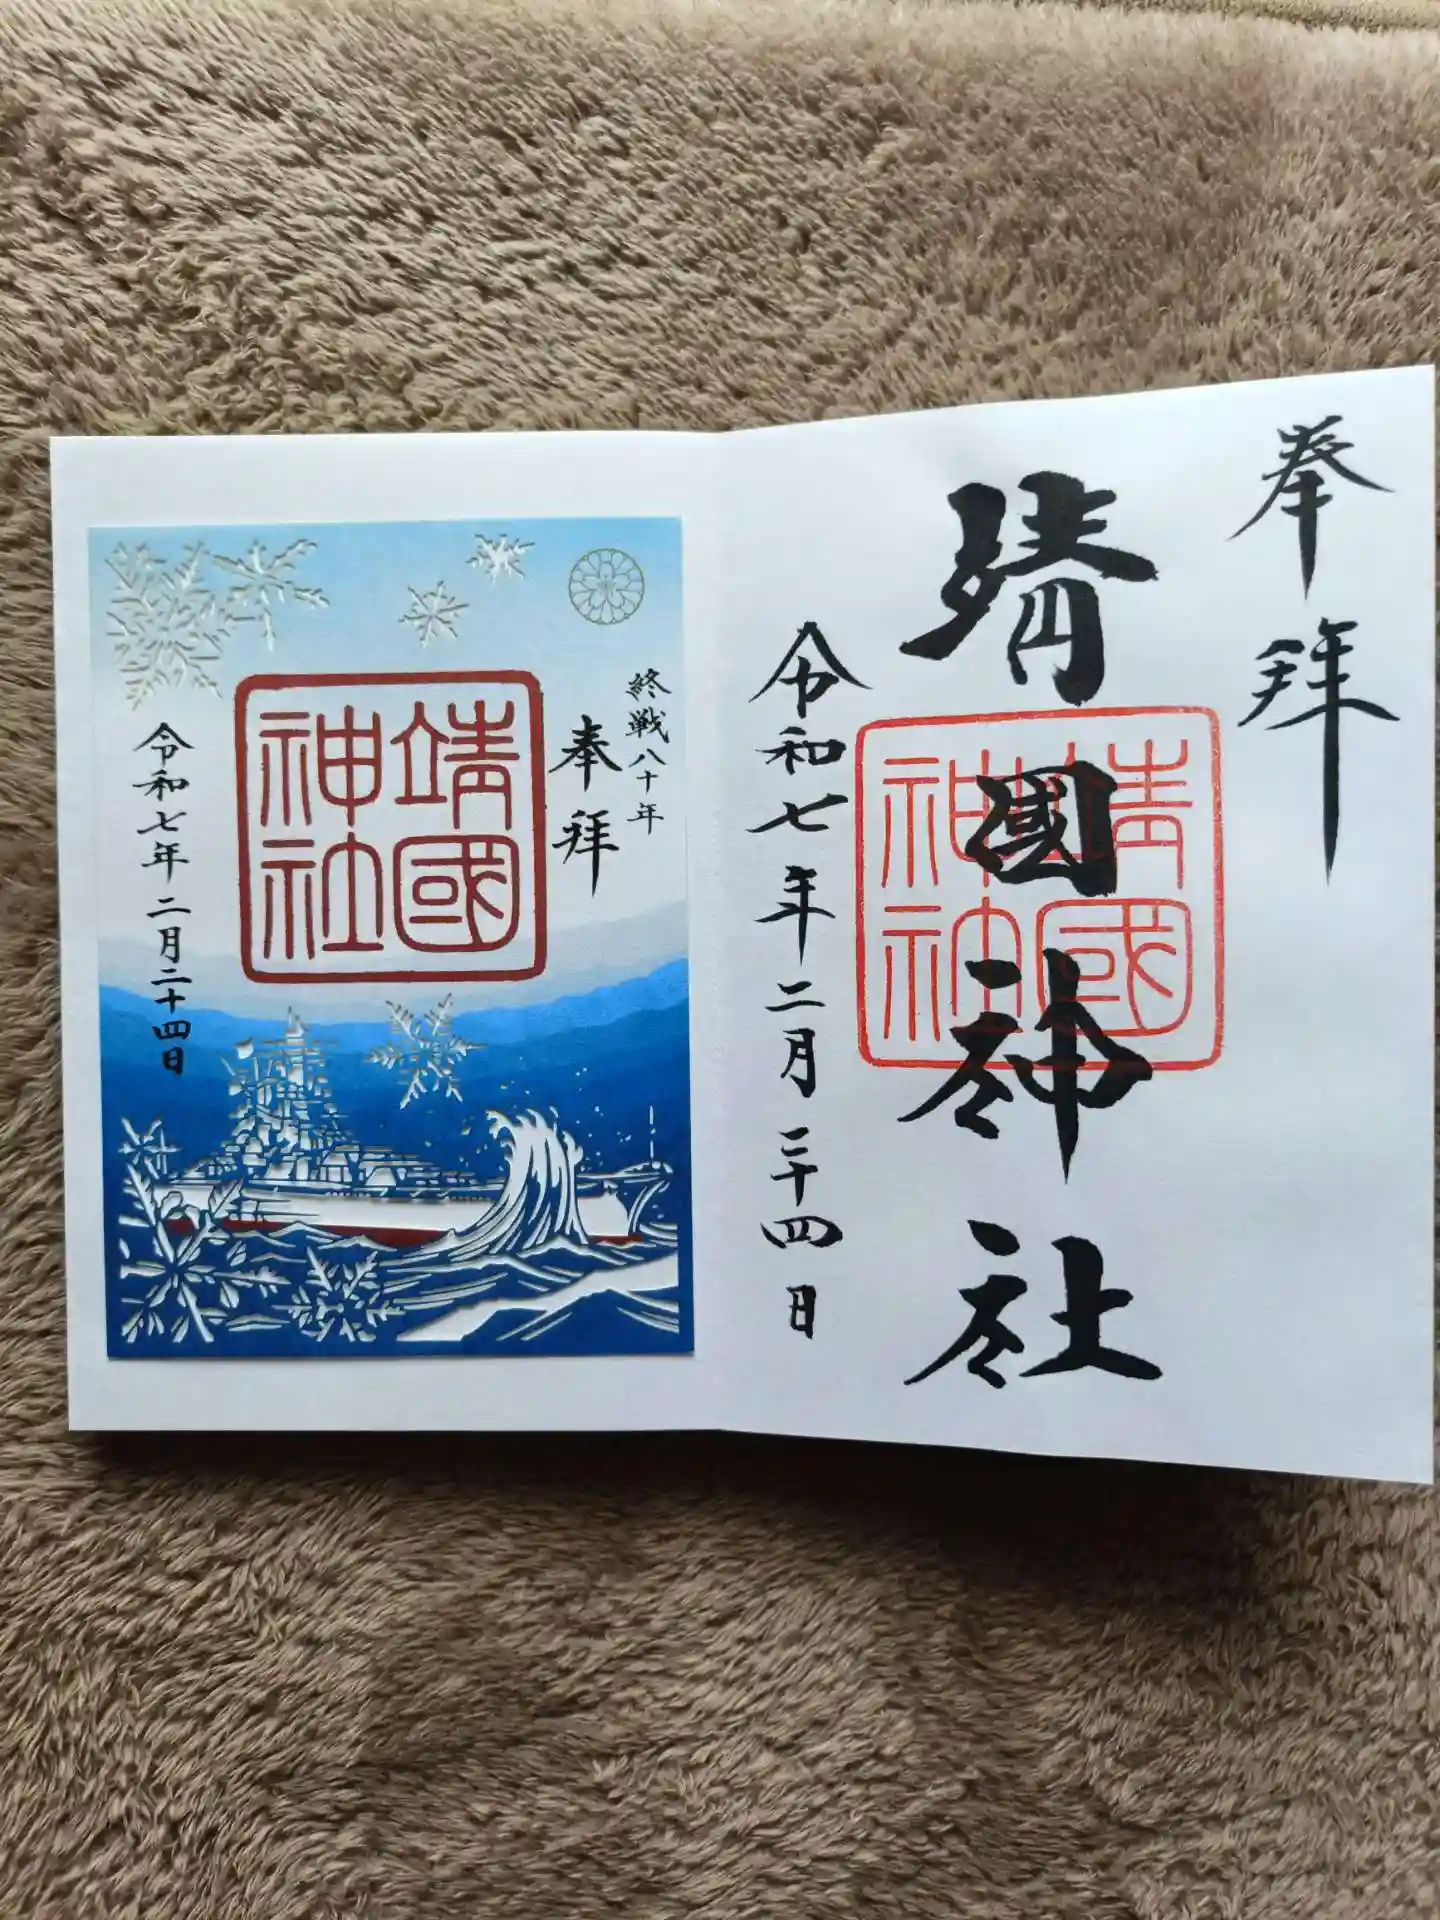 奉拝
靖國神社
靖國
神社
令和七年二月二十四日
終戦八十年
奉拝
靖國
神社
令和七年二月二十四日